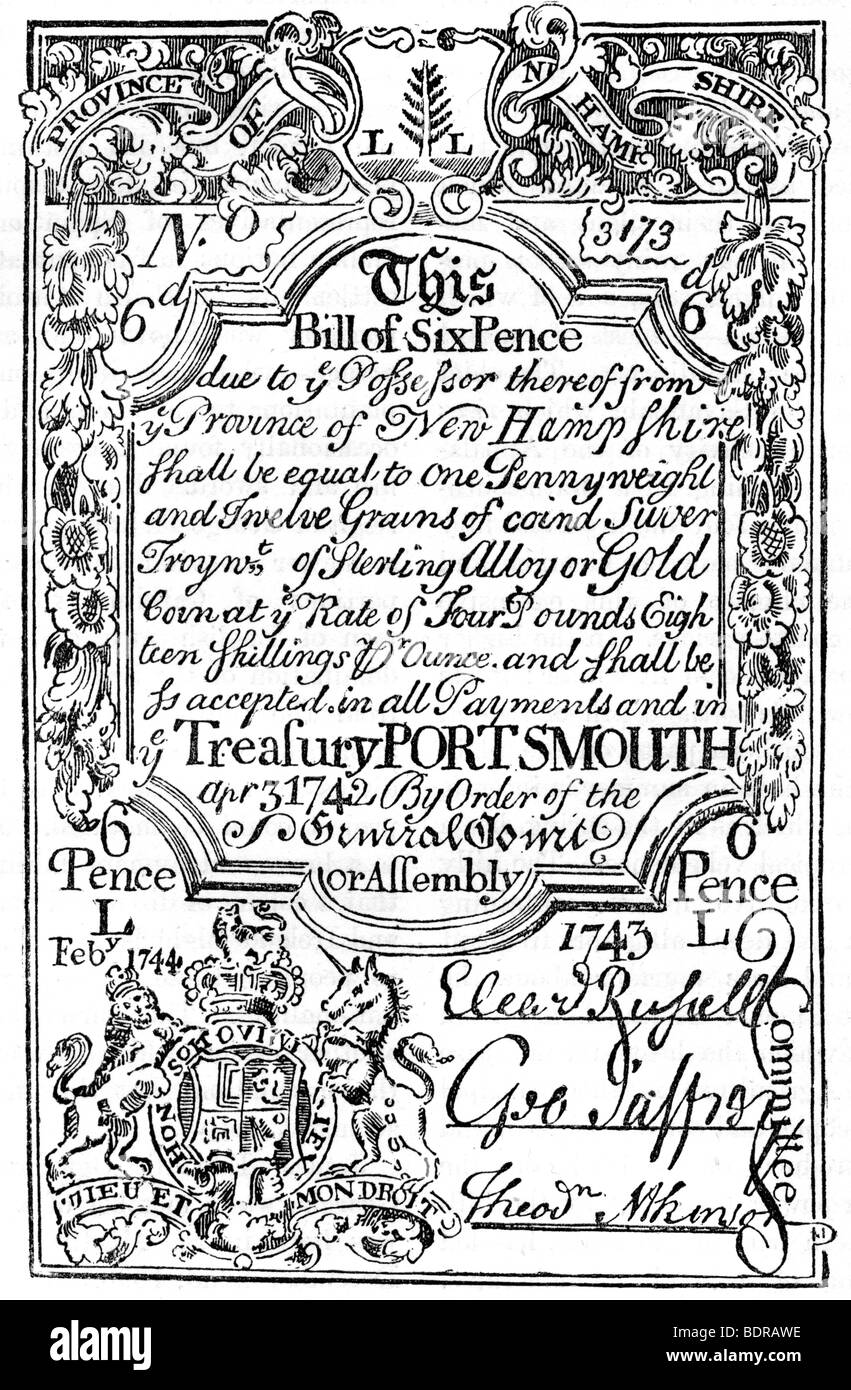 PROVINCE OF NEW HAMP SHIRE
L L
N.º 3173
6d 6d
This
Bill of Six Pence
due to yͤ Poſseſsor thereof from
yͤ Province of New Hampſhire
ſhall be equal to one Pennyweight
and Twelve Grains of coind Silver
Troy wt of Sterling Alloy or Gold
Coin at yͤ Rate of Four Pounds Eigh
teen ſhillings Pr Ounce. and ſhall be
ſs accepted. in all Payments and in
yͤ Treaſury PORTSMOUTH
apr 3 1742 By Order of the
General Court
or Aſſembly
6 6
Pence Pence
L 1743 L
Feby 1744
Eleazr Ruſsell
Geo Jaffrey
Theodn Atkinson
Committee
HONI SOIT QUI MAL Y PENSE
DIEU ET MON DROIT
alamy
Image ID: BDRAWE
www.alamy.com